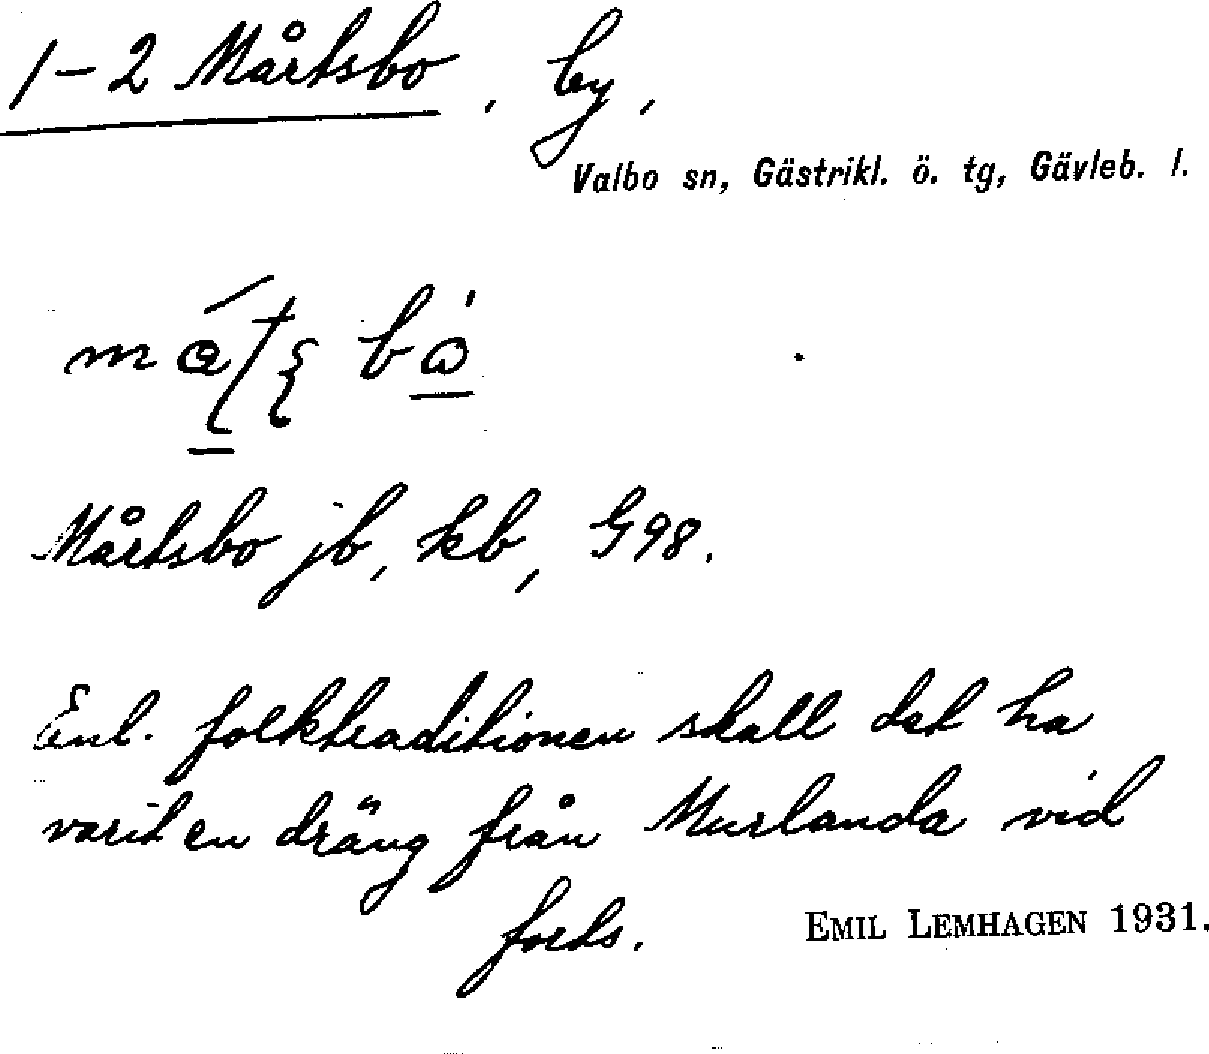 1-2 Mårtsbo, by,
Valbo sn, Gästrikl. ö. tg, Gävleb. l.
Mårtsbo jb, kb, G98.
Enl. folktraditionen skall det ha
varit en dräng från Murlanda vid
forts.
EMIL LEMHAGEN 1931.